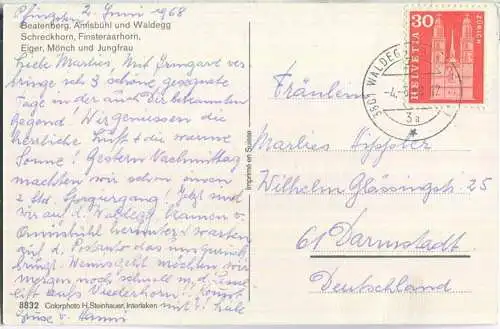 Pfingsten 2. Juni 1968
Beatenberg, Amisbühl und Waldegg
Schreckhorn, Finsteraarhorn,
Eiger, Mönch und Jungfrau
Liebe Marlies, Mit Irmgard ver-
bringe ich 3 schöne geregnete
Tage in der auch Dir bekannten
Gegend! Wir geniessen die
herrliche Luft & die warme
Sonne! Gestern Nachmittag
machten wir schon einen
2 Std. Spaziergang! Jetzt sind
wir auf d. Waldegg, kamen v.
Amisbühl herunter & warten
auf d. Postauto das uns zurück
bringt. Wenns geht möchten wir
morgen noch schnell m. d. Sessel
lift aufs Niederhorn!
Grüsse v. Hanni
8832 Colorphoto H. Steinhauer, Interlaken
Imprimé en Suisse
HELVETIA
30
ZÜRICH
3801 WALDEGG
Fräulein
Marlies
Wilhelm Glässingstr. 25
61 Darmstadt
Deutschland